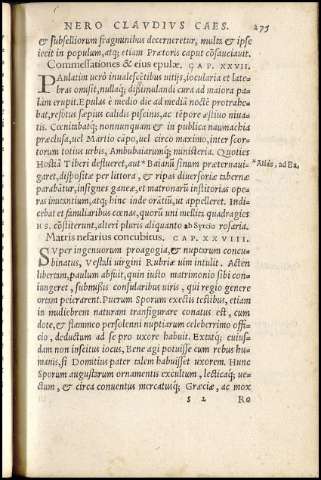 NERO CLAVDIVS CAES. 275
& subselliorum fragminibus decerneretur, multa & ipse
iecit in populum, atq; etiam Prætoris caput cōsauciauit.
Commessationes & eius epulæ. CAP. XXVII.
PAulatim uerò inualescētibus uitijs, iocularia et late
bras omisit, nullaq; dissimulandi cura ad maiora pa
làm erupit. Epulas è medio die ad mediā noctē protrahe
bat, refotus sæpius calidis piscinis, ac tēpore æstiuo niua
tis. Cœnitabatq; nonnunquam & in publica naumachia
præclusa, uel Martio cāpo, uel circo maximo, inter scor
torum totius urbis, Ambubaiarumq; ministeria. Quoties
Hostiā Tiberi deflueret, aut *Baianū sinum præternaui-
*Aliàs, ad Ba,
garet, dispositæ per littora, & ripas diuersoriæ tabernæ
parabātur, insignes ganeæ, et matronarū institorias ope
ras imitantium, atq; hinc inde orātiū, ut appelleret. Indi
cebat et familiaribus cœnas, quorū uni mellita quadragies
H S. cōstiterunt, alteri pluris aliquanto ab Syrtio rosaria.
Matris nefarius concubitus. CAP. XXVIII.
SVper ingenuorum proagogia, & nuptarum concu-
binatus, Vestali uirgini Rubriæ uim intulit. Acten
libertam, paulum abfuit, quin iusto matrimonio sibi con
iungeret, submissis consularibus uiris, qui regio genere
ortam peierarent. Puerum Sporum exectis testibus, etiam
in muliebrem naturam transfigurare conatus est, cum
dote, & flammeo persolenni nuptiarum celeberrimo offi-
cio, deductum ad se pro uxore habuit. Extatq; cuius-
dam non inscitus iocus, Bene agi potuisse cum rebus hu-
manis, si Domitius pater talem habuisset uxorem. Hunc
Sporum augustarum ornamentis excultum, lecticaq; ue-
ctum, & circa conuentus mercatusq; Græciæ, ac mox
S 2 Ro